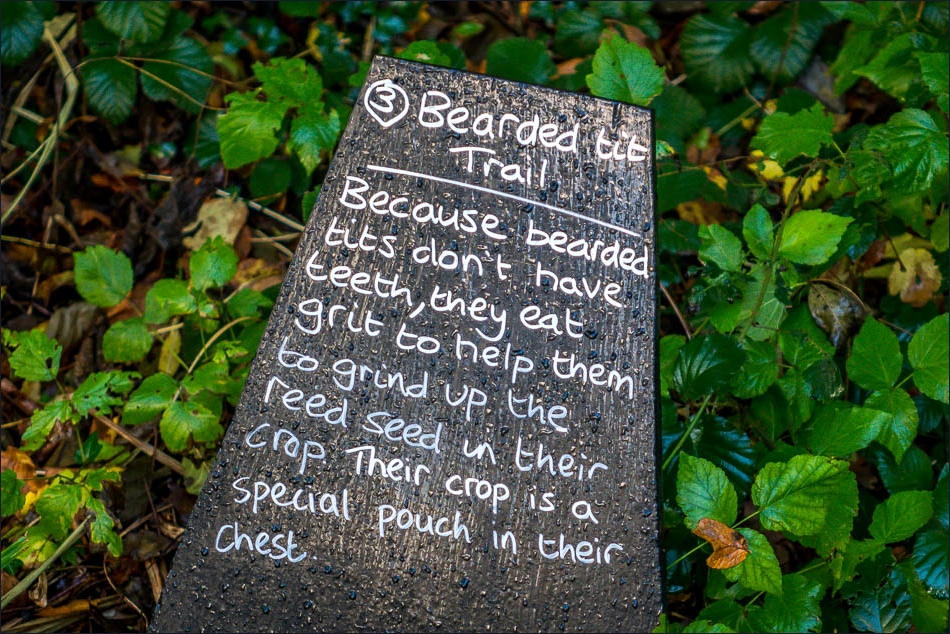 3 Bearded tit
Trail
Because bearded
tits don't have
teeth, they eat
grit to help them
to grind up the
reed seed in their
crap Their crop is a
special pouch in their
chest.